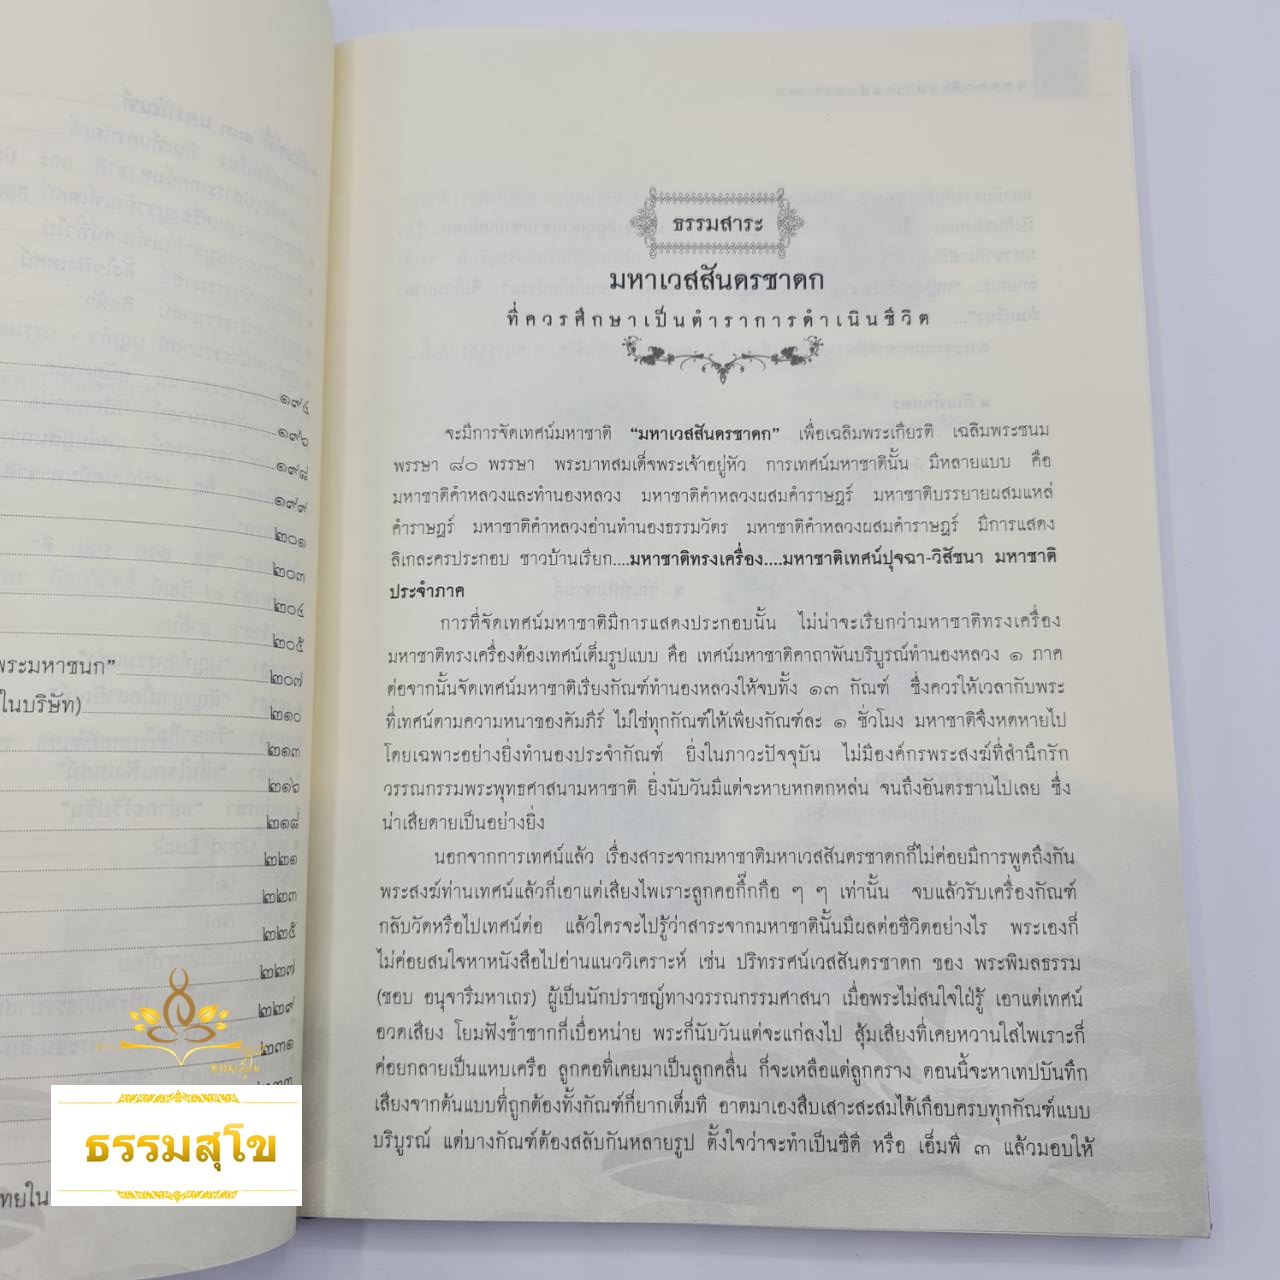 ๑๙๔
๑๙๖
๑๙๘
๑๙๙
๒๐๑
๒๐๓
๒๐๔
๒๐๕
พระมหาชนก”
๒๐๗
ในบริษัท)
๒๑๐
๒๑๓
๒๑๖
๒๑๘
๒๒๑
๒๒๓
๒๒๕
๒๒๗
๒๒๙
๒๓๑
ธรรมสุโข
ธรรมสาระ
มหาเวสสันดรชาดก
ที่ควรศึกษาเป็นตำราการดำเนินชีวิต
จะมีการจัดเทศน์มหาชาติ “มหาเวสสันดรชาดก” เพื่อเฉลิมพระเกียรติ เฉลิมพระชนม
พรรษา ๘๐ พรรษา พระบาทสมเด็จพระเจ้าอยู่หัว การเทศน์มหาชาตินั้น มีหลายแบบ คือ
มหาชาติคำหลวงและทำนองหลวง มหาชาติคำหลวงผสมคำราษฎร์ มหาชาติบรรยายผสมแหล่
คำราษฎร์ มหาชาติคำหลวงอ่านทำนองธรรมวัตร มหาชาติคำหลวงผสมคำราษฎร์ มีการแสดง
ลิเกละครประกอบ ชาวบ้านเรียก....มหาชาติทรงเครื่อง....มหาชาติเทศน์ปุจฉา-วิสัชนา มหาชาติ
ประจำภาค
การที่จัดเทศน์มหาชาติมีการแสดงประกอบนั้น ไม่น่าจะเรียกว่ามหาชาติทรงเครื่อง
มหาชาติทรงเครื่องต้องเทศน์เต็มรูปแบบ คือ เทศน์มหาชาติคาถาพันบริบูรณ์ทำนองหลวง ๑ ภาค
ต่อจากนั้นจัดเทศน์มหาชาติเรียงกัณฑ์ทำนองหลวงให้จบทั้ง ๑๓ กัณฑ์ ซึ่งควรให้เวลากับพระ
ที่เทศน์ตามความหนาของคัมภีร์ ไม่ใช่ทุกกัณฑ์ให้เพียงกัณฑ์ละ ๑ ชั่วโมง มหาชาติจึงหดหายไป
โดยเฉพาะอย่างยิ่งทำนองประจำกัณฑ์ ยิ่งในภาวะปัจจุบัน ไม่มีองค์กรพระสงฆ์ที่สำนึกรัก
วรรณกรรมพระพุทธศาสนามหาชาติ ยิ่งนับวันมีแต่จะหายหกตกหล่น จนถึงอันตรธานไปเลย ซึ่ง
น่าเสียดายเป็นอย่างยิ่ง
นอกจากการเทศน์แล้ว เรื่องสาระจากมหาชาติมหาเวสสันดรชาดกก็ไม่ค่อยมีการพูดถึงกัน
พระสงฆ์ท่านเทศน์แล้วก็เอาแต่เสียงไพเราะลูกคอกึ๊กกือ ๆ ๆ เท่านั้น จบแล้วรับเครื่องกัณฑ์
กลับวัดหรือไปเทศน์ต่อ แล้วใครจะไปรู้ว่าสาระจากมหาชาตินั้นมีผลต่อชีวิตอย่างไร พระเองก็
ไม่ค่อยสนใจหาหนังสือไปอ่านแนววิเคราะห์ เช่น ปริทรรศน์เวสสันดรชาดก ของ พระพิมลธรรม
(ชอบ อนุจารีมหาเถร) ผู้เป็นนักปราชญ์ทางวรรณกรรมศาสนา เมื่อพระไม่สนใจใฝ่รู้ เอาแต่เทศน์
อวดเสียง โยมฟังซ้ำซากก็เบื่อหน่าย พระก็นับวันแต่จะแก่ลงไป สุ้มเสียงที่เคยหวานใสไพเราะก็
ค่อยกลายเป็นแหบเครือ ลูกคอที่เคยมาเป็นลูกคลื่น ก็จะเหลือแต่ลูกคราง ตอนนี้จะหาเทปบันทึก
เสียงจากต้นแบบที่ถูกต้องทั้งกัณฑ์ก็ยากเต็มที อาตมาเองสืบเสาะสะสมได้เกือบครบทุกกัณฑ์แบบ
บริบูรณ์ แต่บางกัณฑ์ต้องสลับกันหลายรูป ตั้งใจว่าจะทำเป็นซีดี หรือ เอ็มพี ๓ แล้วมอบให้